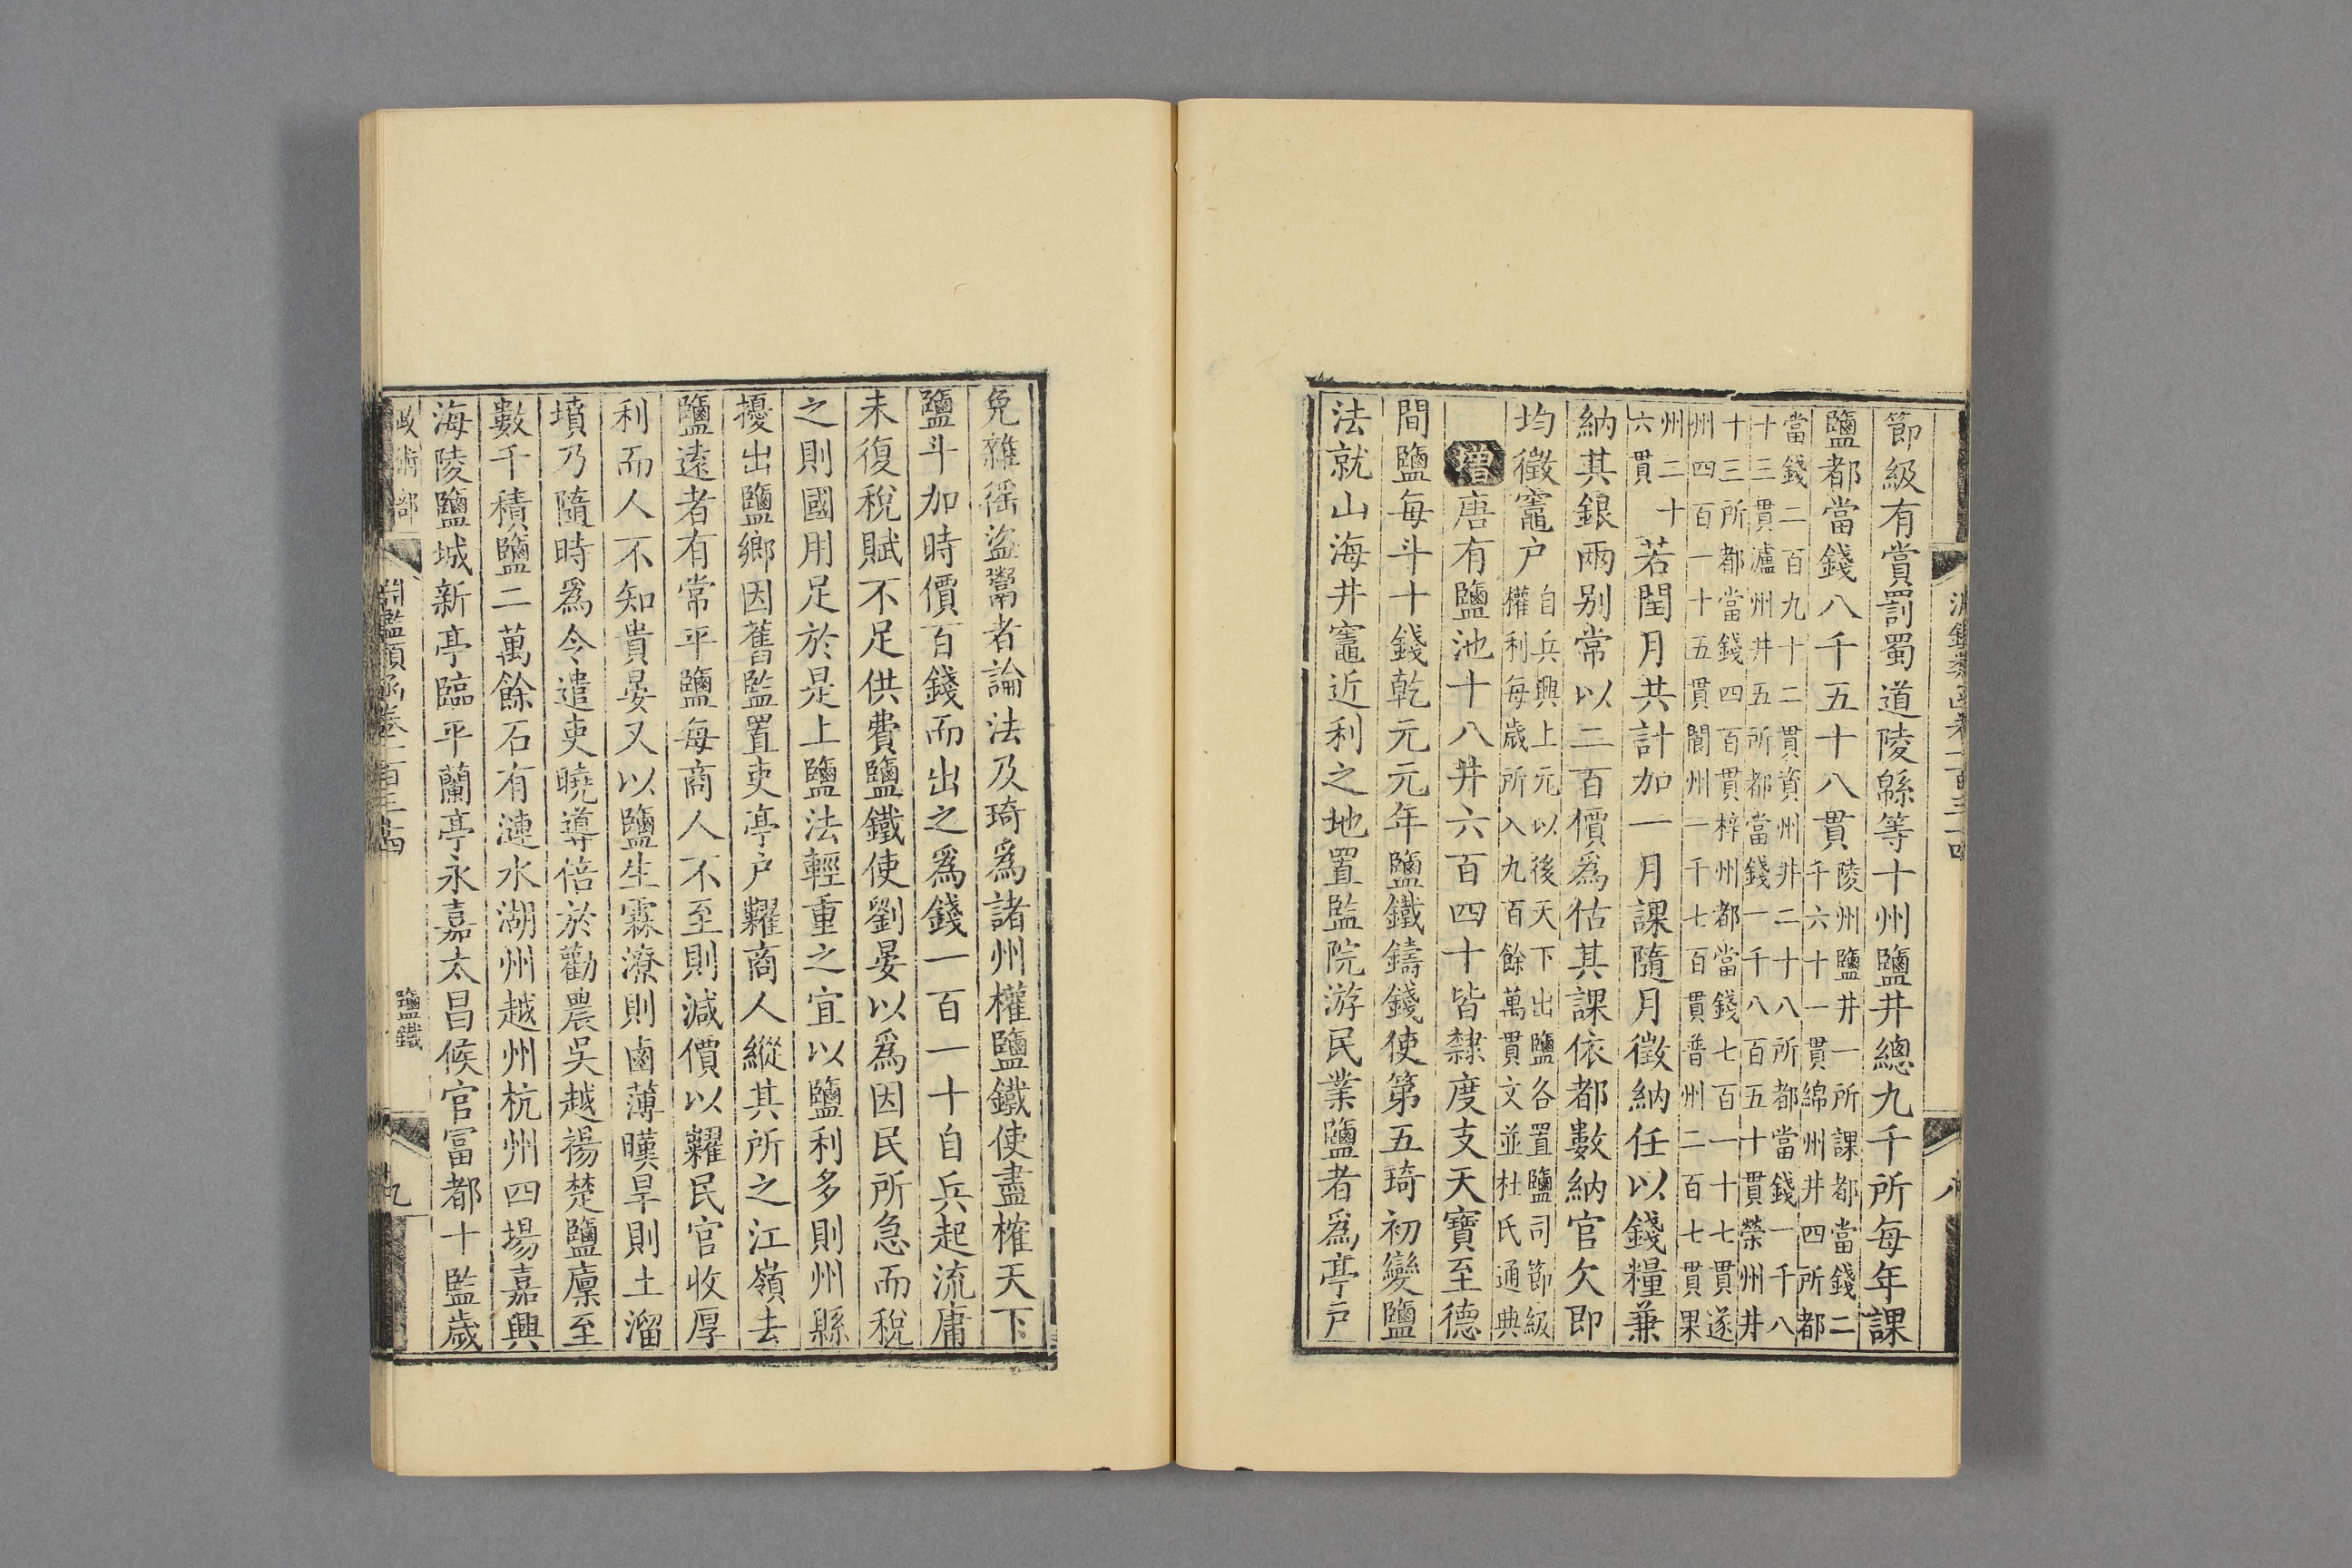 節級有賞罰蜀道陵緜等十州鹽井總九千所每年課
鹽都當錢八千五十八貫陵州鹽井一所課都當錢二
千六十一貫綿州井四所都
當錢二百九十二貫資州井二十八所都當錢一千八
十三貫瀘州井五所都當錢一千八百五十貫榮州井
十三所都當錢四百貫梓州都當錢七百一十七貫遂
州四百一十五貫閬州一千七百貫普州二百七貫果
州二十
六貫若閏月共計加一月課隨月徵納任以錢糧兼
納其銀兩別常以二百價爲估其課依都數納官欠即
均徵竈户自兵興上元以後天下出鹽各置鹽司節級
權利每歲所入九百餘萬貫文並杜氏通典
增唐有鹽池十八井六百四十皆隸度支天寶至德
間鹽每斗十錢乾元元年鹽鐵鑄錢使第五琦初變鹽
法就山海井竈近利之地置監院游民業鹽者爲亭戶
免雜徭盜鬻者論法及琦爲諸州榷鹽鐵使盡榷天下
鹽斗加時價百錢而出之爲錢一百一十自兵起流庸
未復稅賦不足供費鹽鐵使劉晏以爲因民所急而稅
之則國用足於是上鹽法輕重之宜以鹽利多則州縣
擾出鹽鄉因舊監置吏亭户糶商人縱其所之江嶺去
鹽遠者有常平鹽每商人不至則減價以糶民官收厚
利而人不知貴晏又以鹽生霖潦則鹵薄暵旱則土溜
墳乃隨時爲令遣吏曉導倍於勸農吳越揚楚鹽廩至
數千積鹽二萬餘石有漣水湖州越州杭州四場嘉興
海陵鹽城新亭臨平蘭亭永嘉太昌候官富都十監歲
政術部 淵鑑類函卷一百三十四 鹽鐵 九